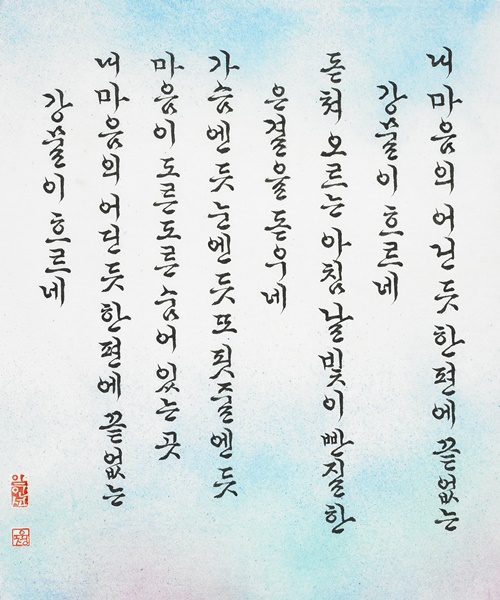 내 마음의 어딘 듯 한편에 끝없는
강물이 흐르네
돋쳐 오르는 아침 날빛이 빤질한
은결을 돋우네
가슴엔 듯 눈엔 듯 또 핏줄엔 듯
마음이 도른도른 숨어 있는 곳
내 마음의 어딘 듯 한편에 끝없는
강물이 흐르네